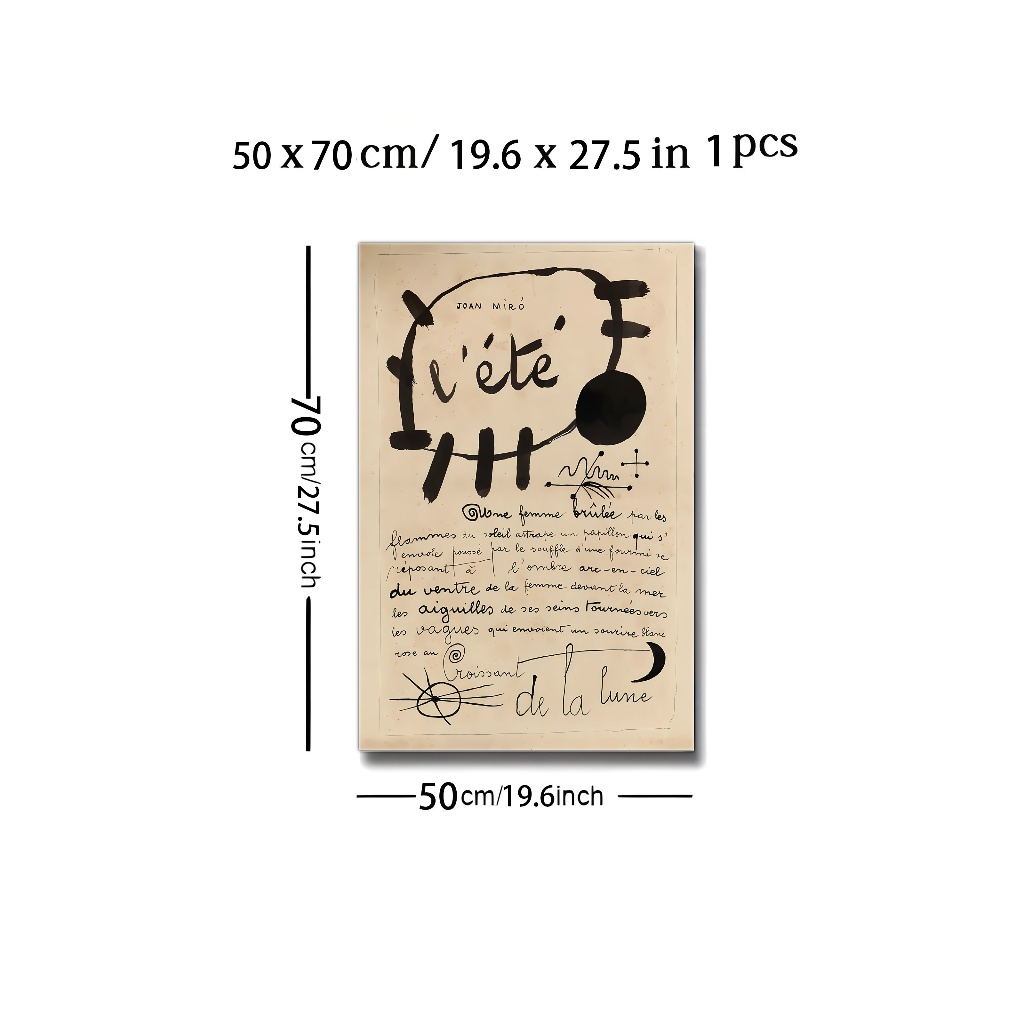 50 x 70 cm/ 19.6 x 27.5 in 1 pcs
JOAN MIRÓ
l'été
Une femme brûlée par les
flammes du soleil attrape un papillon qui s'
envole poussé par le souffle d'une fourmi se
réposant à l'ombre arc-en-ciel
du ventre de la femme devant la mer
les aiguilles de ses seins tournées vers
les vagues qui envoient un sourire blanc
rose au Croissant
de la lune
70 cm/27.5inch
50cm/19.6inch